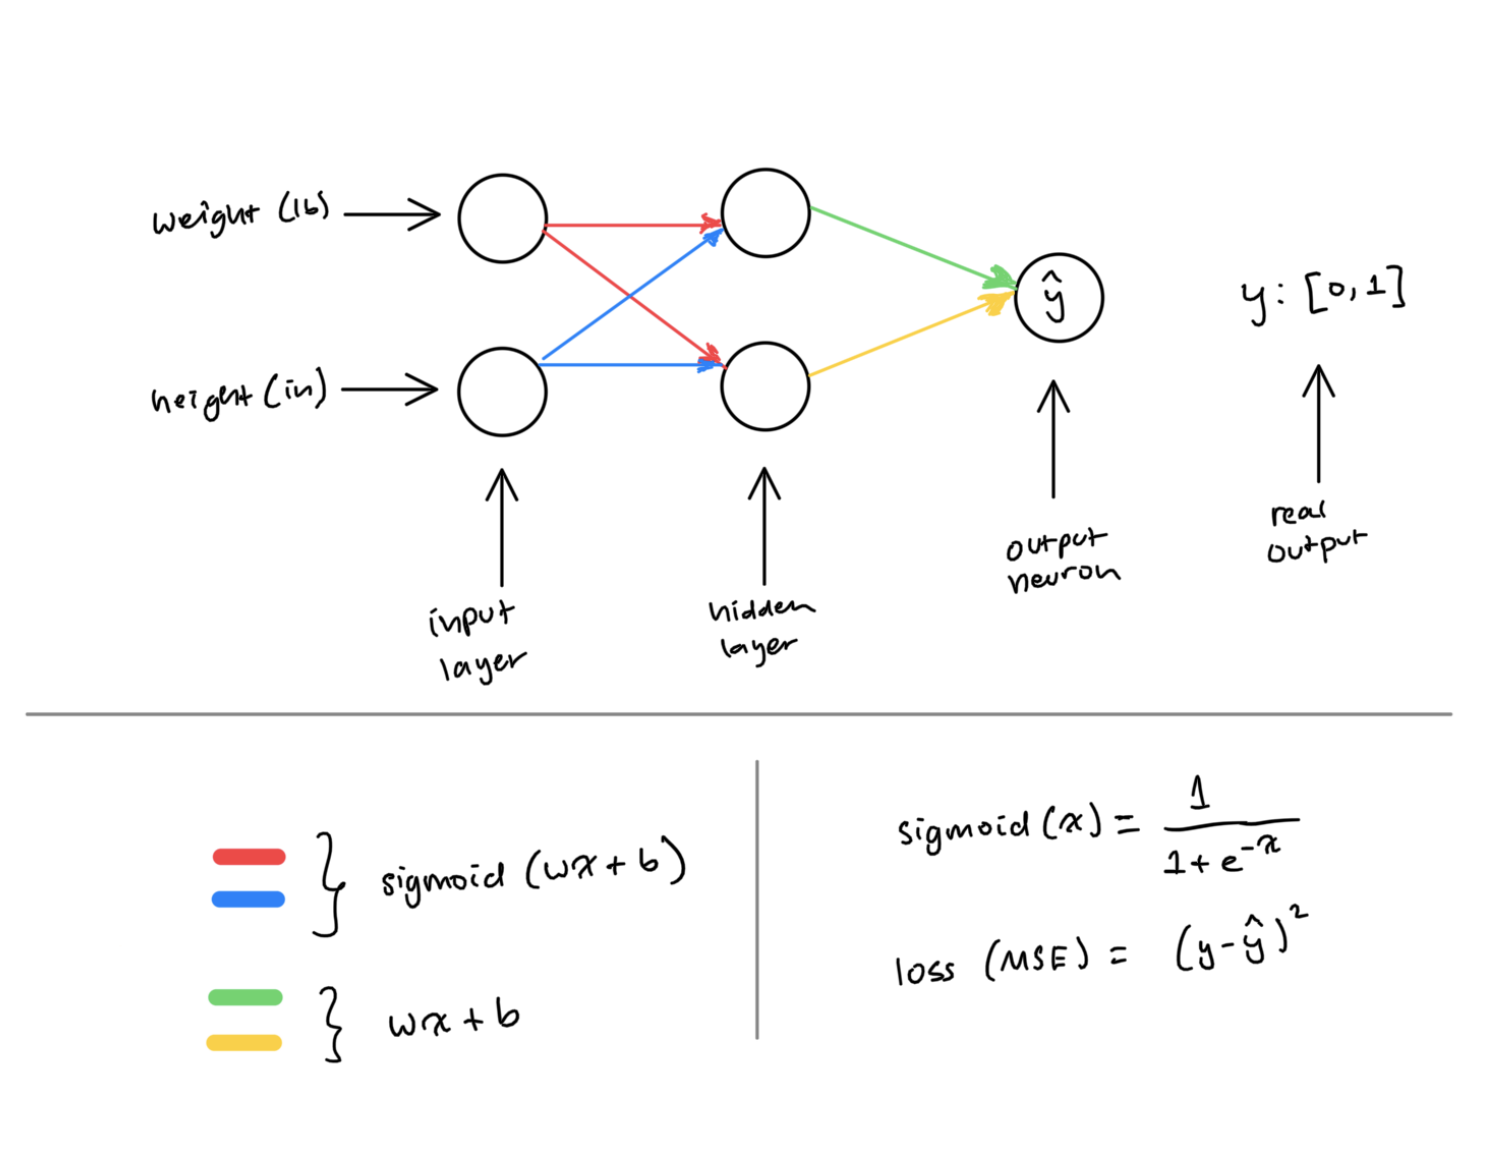 weight (lb)
height (in)
ŷ
y: [0,1]
input
layer
hidden
layer
output
neuron
real
output
sigmoid (wx + b)
wx + b
sigmoid (x) = 1 / 1 + e^-x
loss (MSE) = (y - ŷ)^2